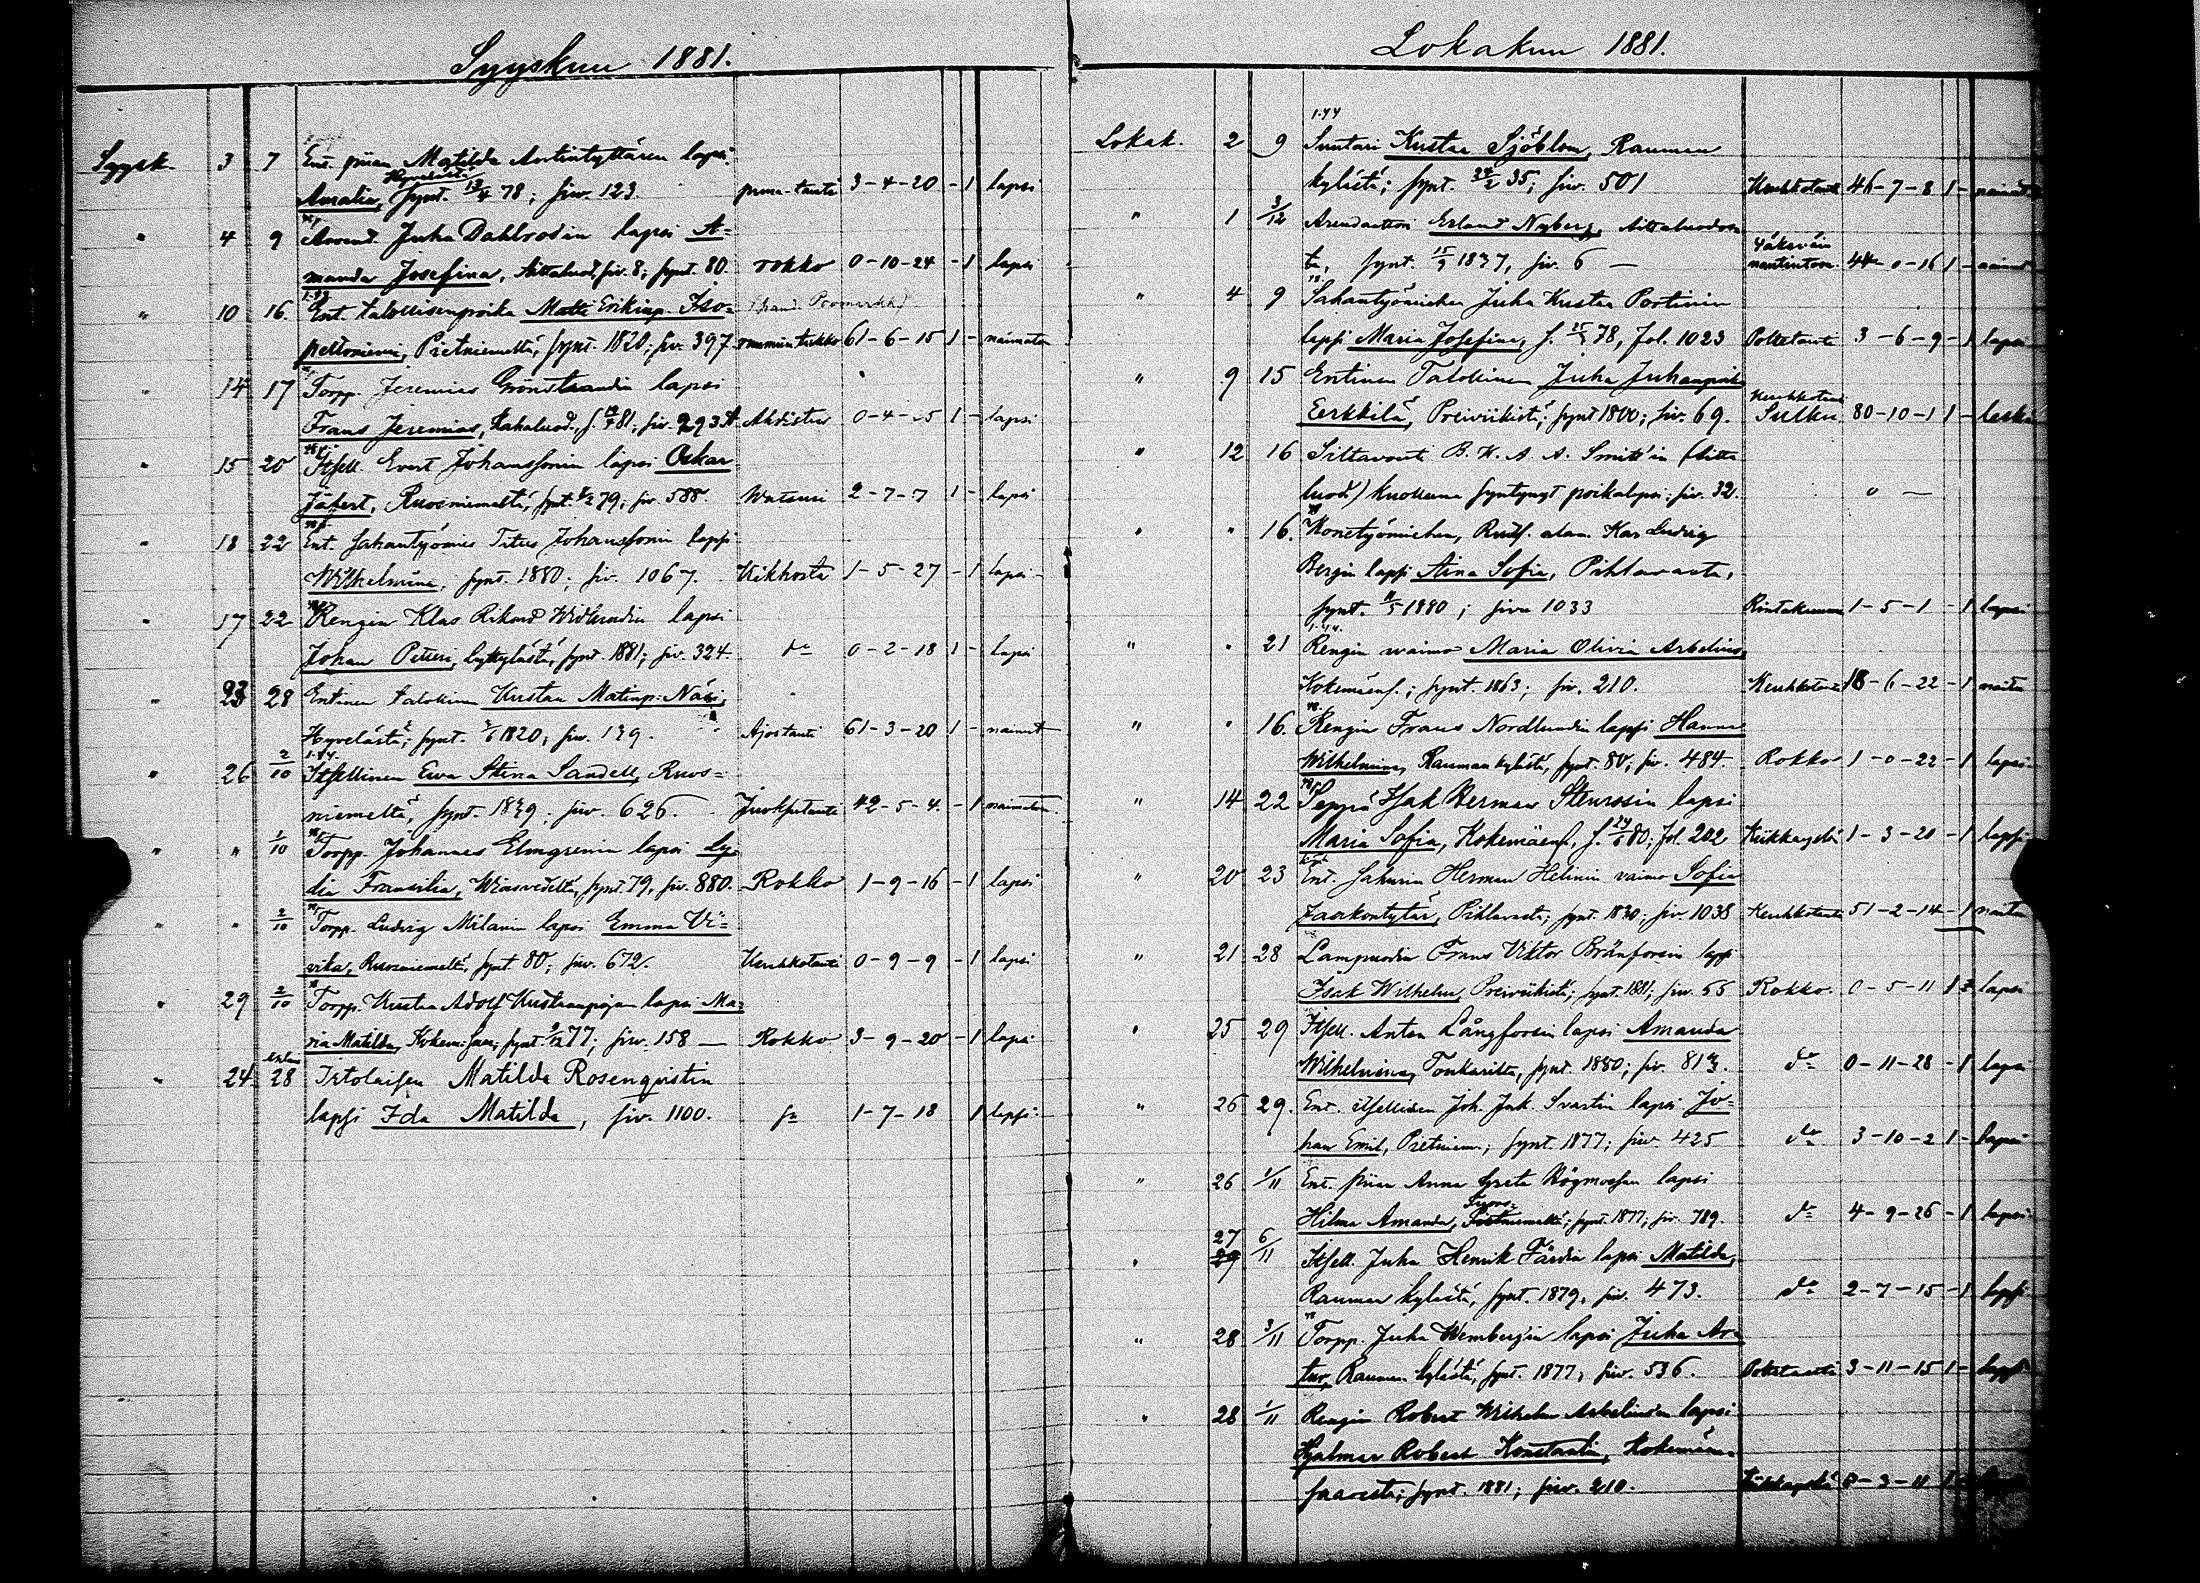 Syyskuu 1881.
Syysk. 3 7 Ent. piian Matilda Antintyttären lapsi
Hyvelästä
Amalia, synt. 13/4 78; siv. 123. puna-tauti 3-4-20 - 1 lapsi
" 4 9 Arend. Juha Dahlrosin lapsi A=
manda Josefina, Aittaluod. siv. 8; synt. 80. rokko 0-10-24 - 1 lapsi
" 10 16. Ent. talollisenpoika Matti Erikinp. Iso=
peltoniemi, Pietniemeltä, synt. 1820; siv. 397. 61-6-15 1 - naimaton
" 14 17 Torpp. Jeremias Grönstrandin lapsi
Frans Jeremias, Kahaluod., s. 81; siv. 293 Ahdistus 0-4- 1 - lapsi
" 15 20 Itsell. Evert Johanssonin lapsi Oskar
Ruosniemeltä, synt. 79; siv. 588. 2-7-7 1 - lapsi
" 18 22 Ent. Sahantyömies Titus Johanssonin lapsi
Wilhelmina, synt. 1880; siv. 1067. Kikhosta 1-5-27 - 1 lapsi
" 17 22 Rengin Klas Rikard Widlundin lapsi
Johan Petteri, Lyttylästä, synt. 1881; siv. 324. do 0-2-18 1 - lapsi
" 23 28 Entinen talollinen Kustaa Matinp. Näsi,
Hyvelästä; synt. 1820; siv. 139. Ajostauti 61-3-20 1 - naimat
" 26 2/10 Itsellinen Ewa Stina Sandell, Ruos=
niemeltä, synt. 1839; siv. 626. 42-5-4. - 1 naimaton.
" " 1/10 Torpp. Johannes Elmgrenin lapsi Ly=
dia Fransilia, synt. 79, siv. 880. Rokko 1-9-16 - 1 lapsi
" " 2/10 Torpp. Ludvig Milanin lapsi Emma Vi=
vika, Ruosniemeltä, synt. 80; siv. 672. Keuhkotauti 0-9-9 - 1 lapsi
" 29 2/10 Torpp. Kustaa Adolf Kustaanpojan lapsi Ma=
ria Matilda, Kokem. saar, synt. 77; siv. 158 — Rokko 3-9-20 - 1 lapsi
" 24 28 Irtolaisen Matilda Rosenqvistin
lapsi Ida Matilda, siv. 1100. do 1-7-18 1 lapsi
Lokakuu 1881.
1.44
Lokak. 2 9 Suutari Kustaa Sjöblom, Rauman
kylästä; synt. 24/2 35; siv. 501 Keuhkotauti 46-7-8 1 - nainut
" 1 3/12 Arendaattori Erland Nyberg, Aittaluodos=
ta, synt. 15/9 1837, siv. 6 — 44-0-16 1 - nainut
" 4 9 Sahantyömiehen Juha Kustaa Portinin
lapsi Maria Josefina, s. 78, fol. 1023 Polttotauti 3-6-9 - 1 lapsi
" 9 15 Entinen Talollinen Juha Juhanpoika
Eerkkilä, Preiviikistä; synt 1800; siv. 69. Keuhkotauti 80-10-1 1 - leski
" 12 16 Siltavouti B. K. A. A. Smitt'in (Aitta
luod.) kuolleena syntynyt poikalapsi. siv. 32. " —
" " 16. Konetyömiehen, Ruots. alam. Karl Ludvig
Bergin lapsi Aina Sofia, Pihlavasta,
synt. 11/5 1880; sivu 1033 1-5-1 - 1 lapsi
" " 21 Rengin waimo Maria Olivia Arbelius,
Kokemäens.; synt. 1863; siv. 210. Keuhkotauti 18-6-22 - 1 naitu
" " 16. Rengin Frans Nordlundin lapsi Hanna
Wilhelmina, Rauman kylästä, synt. 80, siv. 484. Rokko 1-0-22 - 1 lapsi
" 14 22 Seppä Isak Herman Stenrosin lapsi
Maria Sofia, Kokemäens., s. 80; fol. 202 1-3-20 - 1 lapsi
" 20 23 Ent. Sahurin Herman Helinin vaimo Sofia
Jaakontytär, Pihlavasta; synt. 1830; siv. 1038 Keuhkotauti 51-2-14 - 1 naitu
" 21 28 Lampuodin Frans Viktor Brånforsin laps
Isak Wilhelm, Preiviikistä; synt. 1881; siv. 55 Rokko. 0-5-11 1 - lapsi
" 25 29 Itsell. Anton Långforsin lapsi Amanda
Wilhelmina, synt. 1880; siv. do 0-11-28 - 1 lapsi
" 26 29. Ent. itsellisen Joh. Jak. Svartin lapsi Jo=
han Emil, Pietniem.; synt. 1877; siv. 425 do 3-10-2 1 - lapsi
" 26 1/11 Ent. piian Anna Greta Högmossan lapsi
Hilma Amanda, synt. 1877; siv. 789. do 4-9-26 - 1 lapsi
27
" 29 6/11 Itsell. Juha Henrik Färdin lapsi Matilda,
Rauman kylästä, synt. 1879, siv. 473. do 2-7-15 - 1 lapsi
" 28 3/11 Torpp. Juha Wembergin lapsi Juha Ar=
tur, Rauman kylästä, synt. 1877, siv. 536. Polttotauti 3-11-15 1 - lapsi
" 28 1/11 Rengin Robert Wilhelm Arbeliuksen lapsi
Hjalmar Robert Konstantin, Kokemäen=
saaresta; synt. 1881; siv. 210. 0-3-11